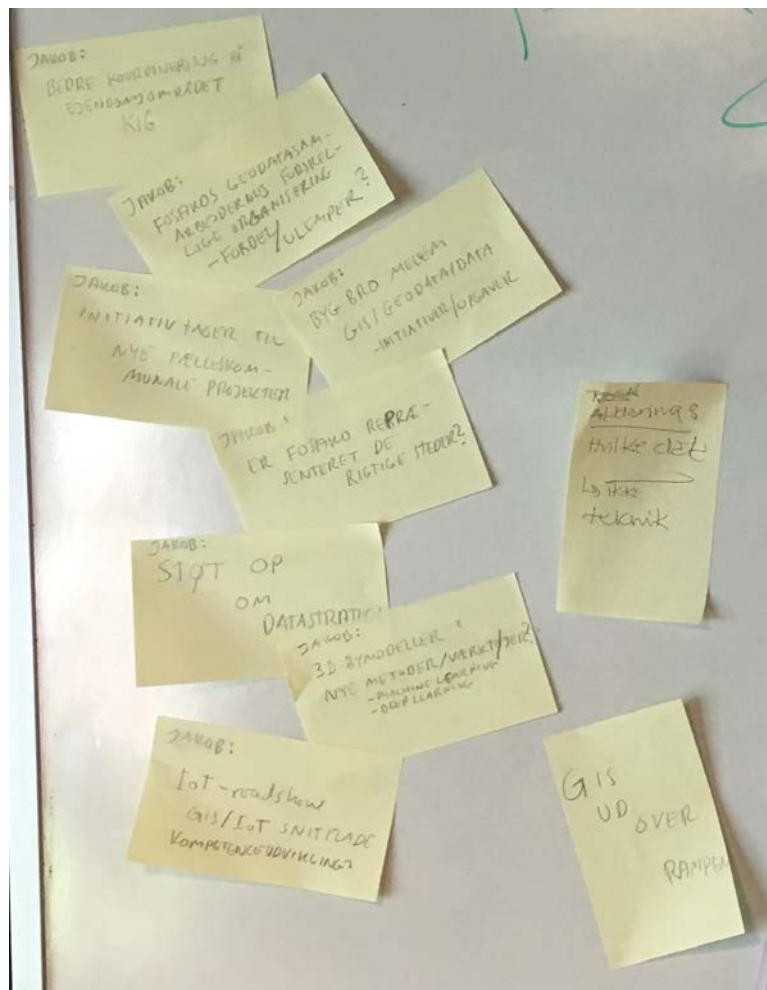 JAKOB:
BEDRE KOORDINERING PÅ
EJENDOMSOMRÅDET
KIG
JAKOB:
FOSAKOS GEODATASAM-
ARBEJDERNES FORSKEL-
LIGE ORGANISERING
- FORDEL/ULEMPER?
JAKOB:
BYG BRO MELLEM
GIS/GEODATA/DATA
-INITIATIVER/OPGAVER
JAKOB:
INITIATIVTAGER TIL
NYE FÆLLESKOM-
MUNALE PROJEKTER
JAKOB:
ER FOSAKO REPRÆ-
SENTERET DE
RIGTIGE STEDER?
JAKOB:
STØT OP
OM
JAKOB:
3D-BYMODELLER:
NYE METODER/VÆRKTØJER?
- MACHINE LEARNING
- DEEP LEARNING
JAKOB:
IoT-roadshow
GIS/IoT SNITFLADE
KOMPETENCEUDVIKLING?
Hvilke
ikke
teknik
GIS
UD OVER
RAMPEN